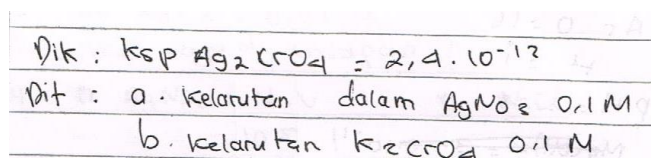 Dik : Ksp Ag2 CrO4 = 2,4 . 10-12
Dit : a. Kelarutan dalam AgNO3 0,1 M
b. Kelarutan K2CrO4 0,1 M